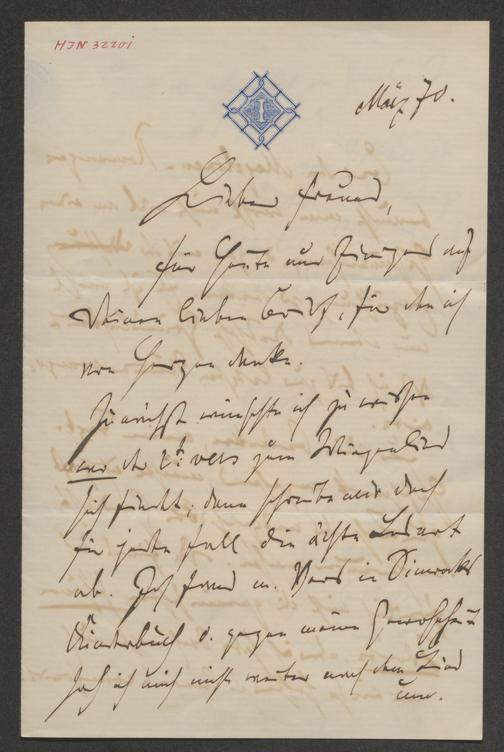 HJN 32201
I
März 70.
Lieber Freund,
für Heute nur Einiges auf
Deinen lieben Brief, für den ich
von Herzen danke.
Zunächst wünschte ich zu wissen
wo der 2t. Vers zum Wiegenlied
sich findet; dann schreibe mir doch
für jeden Fall die ächte Lesart
ab. Ich fand m. Vers in Simrocks
Kinderbuch u. gegen meine Gewohnheit
sah ich mich nicht weiter nach dem Lied
um.